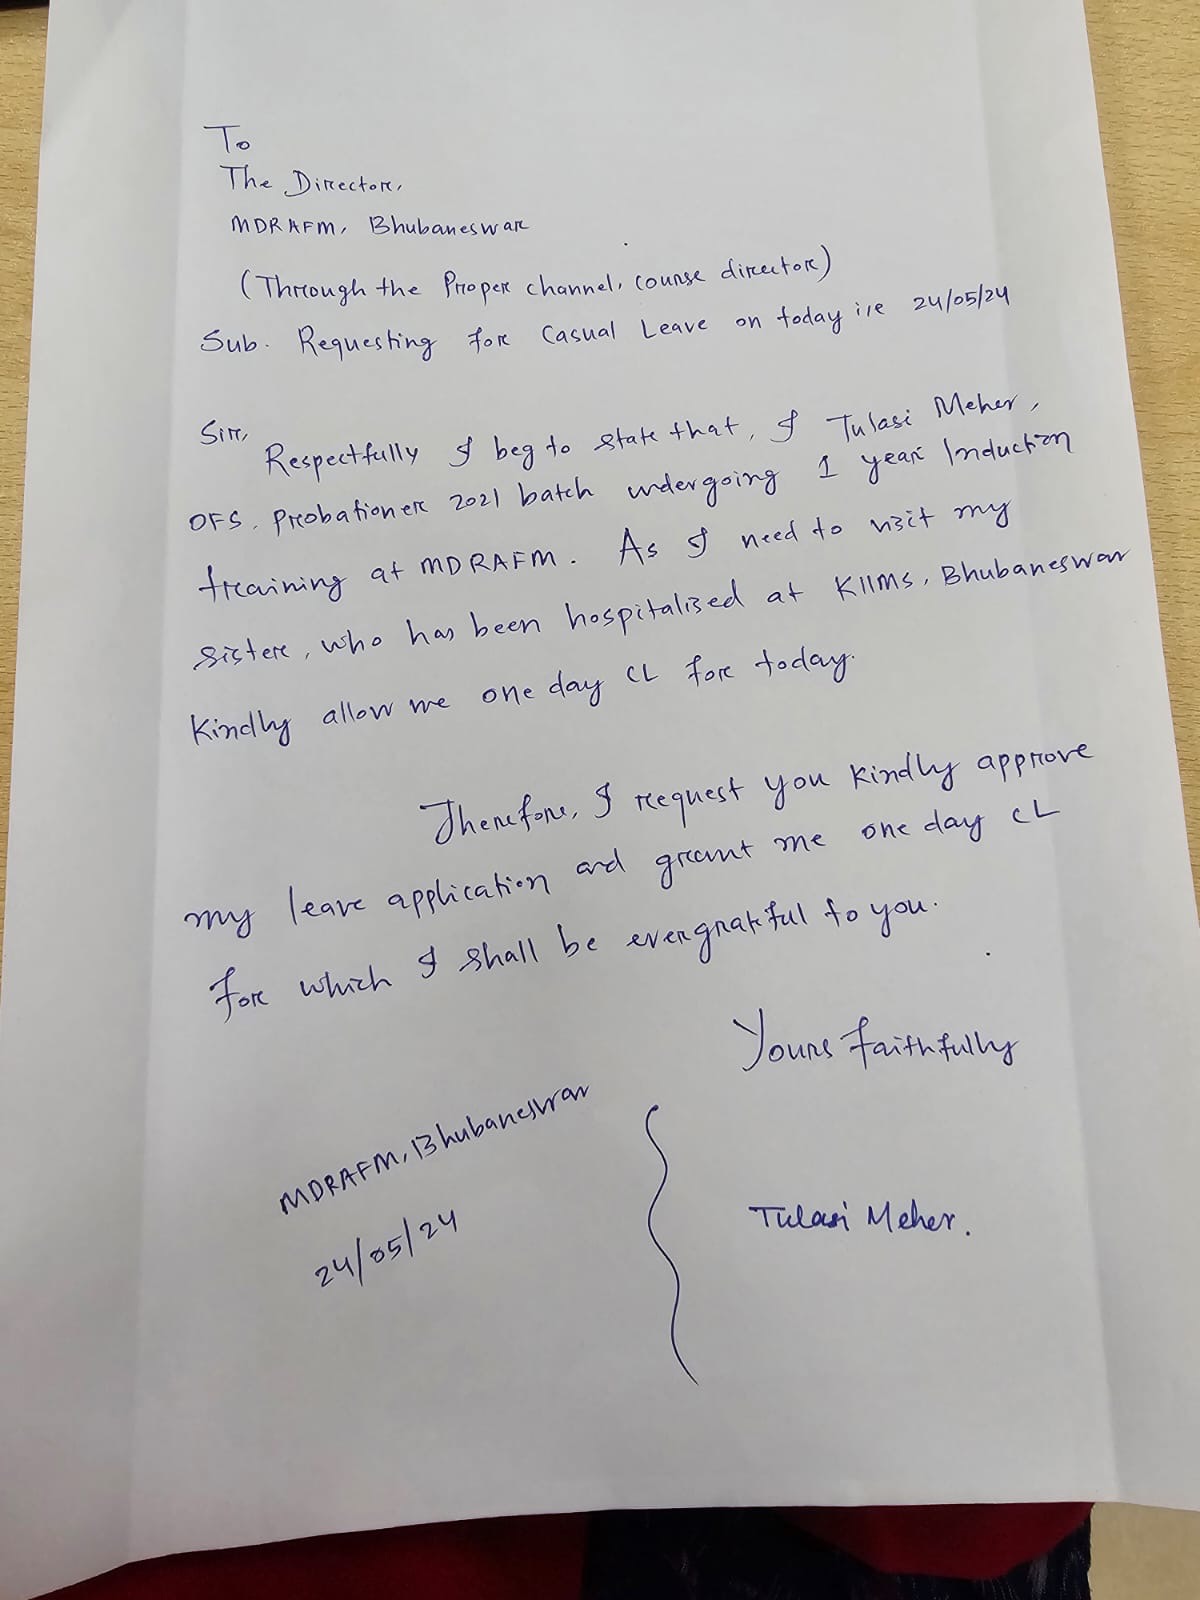 To
The Director,
MDRAFM, Bhubaneswar
(Through the Proper channel, course director)
Sub. Requesting for Casual Leave on today i,e 24/05/24
Sir,
Respectfully I beg to state that, I Tulasi Meher,
OFS, Probationer 2021 batch undergoing 1 year Induction
training at MDRAFM. As I need to visit my
sister, who has been hospitalised at KIIMS, Bhubaneswar
Kindly allow me one day CL for today.
Therefore, I request you kindly approve
my leave application and grant me one day CL
for which I shall be evergrateful to you.
Yours faithfully
MDRAFM, Bhubaneswar
24/05/24
Tulasi Meher.